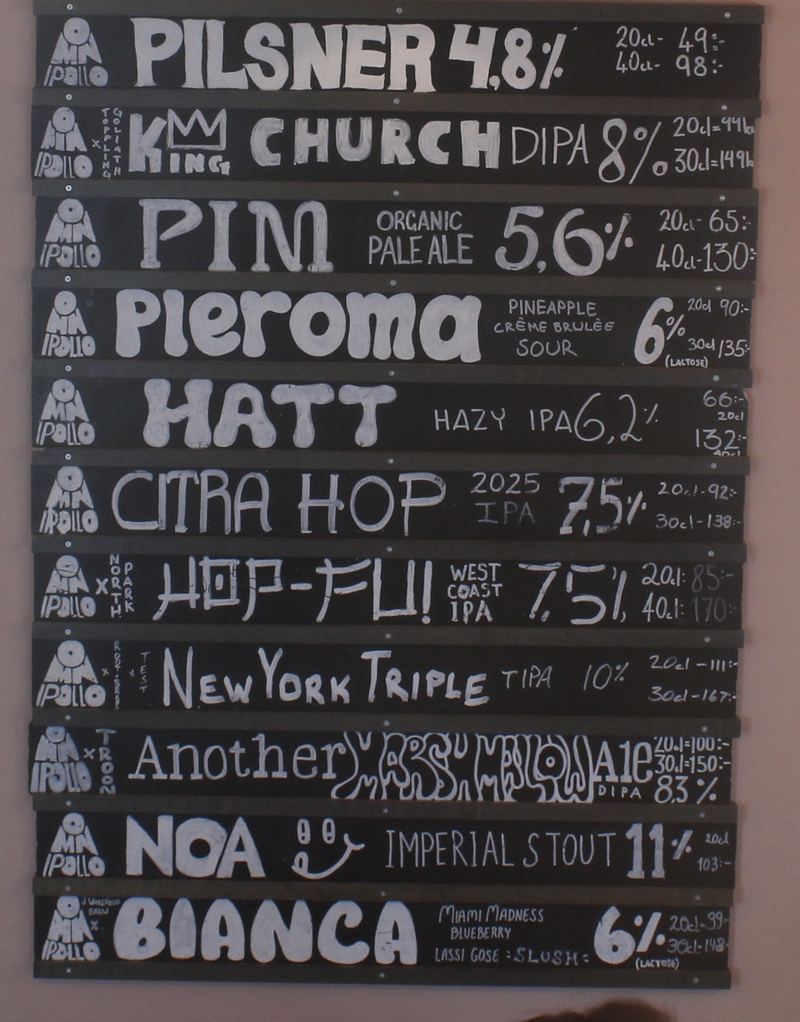 OMNIPOLLO PILSNER 4,8% 20cl- 49:-
40cl- 98:-
OMNIPOLLO x TOPPLING GOLIATH KING CHURCH DIPA 8% 20cl=99kr
30cl=149kr
OMNIPOLLO PIM ORGANIC PALE ALE 5,6% 20cl- 65:-
40cl-130:-
OMNIPOLLO Pleroma PINEAPPLE CRÊME BRULÊE SOUR 6% (LACTOSE) 20cl 90:-
30cl 135:-
OMNIPOLLO HATT HAZY IPA 6,2% 66:- 20cl
132:- 40cl
OMNIPOLLO CITRA HOP 2025 IPA 7,5% 20cl-92:-
30cl-138:-
OMNIPOLLO x NORTH PARK HOP-FU! WEST COAST IPA 7.5% 20cl: 85:-
40cl: 170:-
OMNIPOLLO x x TEST NEW YORK TRIPLE TIPA 10% 20cl-111:-
30cl-167:-
OMNIPOLLO x TROON Another MARSHMELLOW Ale DIPA 20cl=100:-
30cl=150:-
8.3%
OMNIPOLLO NOA IMPERIAL STOUT 11% 20cl
103:-
OMNIPOLLO x BIANCA MIAMI MADNESS BLUEBERRY LASSI GOSE :SLUSH: 6% (LACTOSE) 20cl-99:-
30cl-148:-